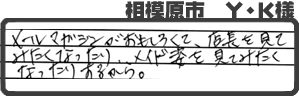 相模原市 Y・K様
メールマガジンがおもしろくて、店長を見て
みたくなったり、メイド姿を見てみたく
なったりするから。